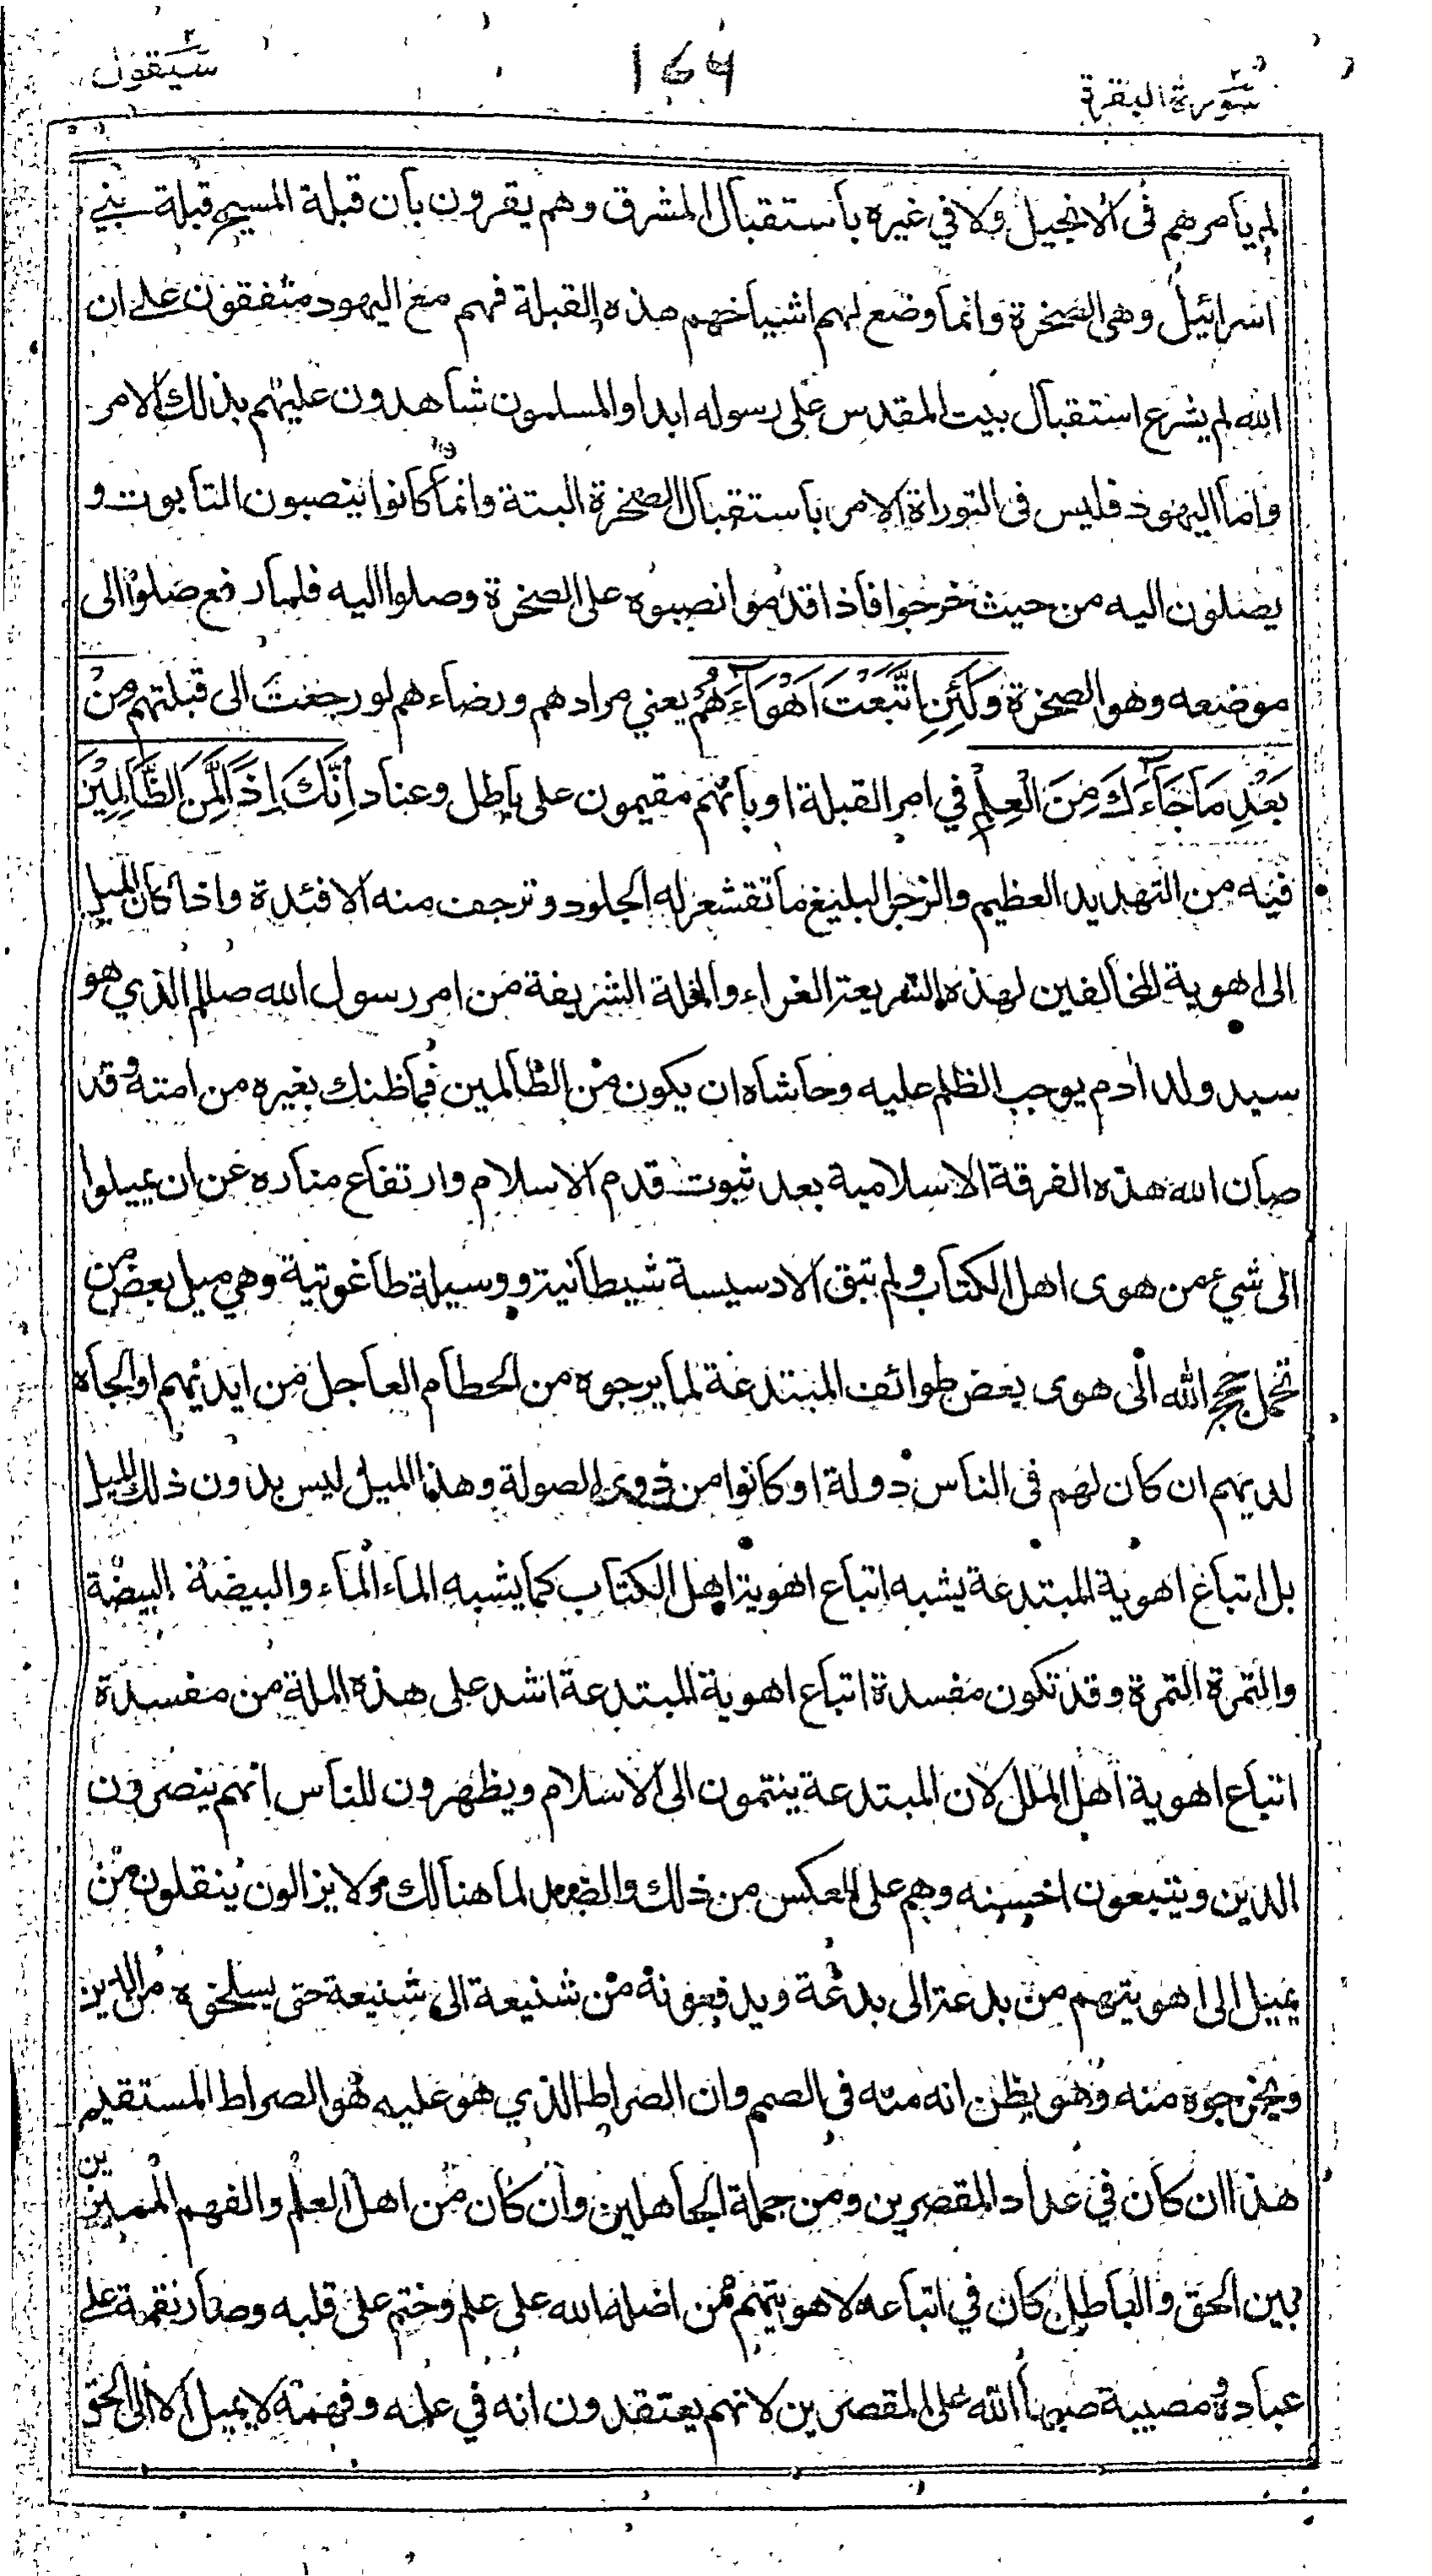 سيقول ٢
164
سورة البقرة ٢
لم يأمرهم في الانجيل ولا في غيره باستقبال المشرق وهم يقرون بأن قبلة المسيح قبلة بني
اسرائيل وهى الصخرة وانما وضع لهم اشياخهم هذه القبلة فهم مع اليهود متفقون على ان
الله لم يشرع استقبال بيت المقدس على رسوله ابدا والمسلمون شاهدون عليهم بذلك الامر
واما اليهود فليس في التوراة الامر باستقبال الصخرة البتة وانما كانوا ينصبون التابوت و
يصلون اليه من حيث خرجوا فاذا قدموا نصبوه على الصخرة وصلوا اليه فلما رفع صلوا الى
موضعه وهو الصخرة وَلَئِنِ اتَّبَعْتَ اَهْوَآءَهُمْ يعني مرادهم ورضاءهم لو رجعت الى قبلتهم مِنْ
بَعْدِ مَا جَآءَكَ مِنَ الْعِلْمِ في امر القبلة او بأنهم مقيمون على باطل وعناد اِنَّكَ اِذًا لَّمِنَ الظَّالِمِيْنَ
فيه من التهديد العظيم والزجر البليغ ما تقشعر له الجلود وترجف منه الافئدة واذا كان الميل
الى اهوية المخالفين لهذه الشريعة الغراء والملة الشريفة من امر رسول الله صللم الذي هو
سيد ولد ادم يوجب الظلم عليه وحاشاه ان يكون من الظالمين فما ظنك بغيره من امته وقد
صان الله هذه الفرقة الاسلامية بعد ثبوت قدم الاسلام وارتفاع مناره عن ان يميلوا
الى شيء من هوى اهل الكتاب ولم تبق الا دسيسة شيطانية ووسيلة طاغوتية وهي ميل بعض من
تحمل حجج الله الى هوى بعض طوائف المبتدعة لما يرجوه من الحطام العاجل من ايديهم او الجاه
لديهم ان كان لهم في الناس دولة او كانوا من ذوى الصولة وهذا الميل ليس بدون ذلك الميل
بل اتباع اهوية المبتدعة يشبه اتباع اهوية اهل الكتاب كما يشبه الماء الماء والبيضة البيضة
والتمرة التمرة وقد تكون مفسدة اتباع اهوية المبتدعة اشد على هذه الملة من مفسدة
اتباع اهوية اهل الملل لان المبتدعة ينتمون الى الاسلام ويظهرون للناس انهم ينصرون
الدين ويتبعون احسنه وهم على العكس من ذلك والضد لما هنالك ولا يزالون ينقلون من
يميل الى اهويتهم من بدعة الى بدعة ويدفعونه من شنيعة الى شنيعة حتى يسلخوه من الدين
ويخرجوه منه وهو يظن انه منه في الصمم وان الصراط الذي هو عليه هو الصراط المستقيم
هذا ان كان في عداد المقصرين ومن جملة الجاهلين وان كان من اهل العلم والفهم المميزين
بين الحق والباطل كان في اتباعه لاهويتهم ممن اضله الله على علم وختم على قلبه وصار نقمة على
عباده ومصيبة صبها الله على المقصرين لانهم يعتقدون انه في علمه وفهمه لا يميل الا الى الحق